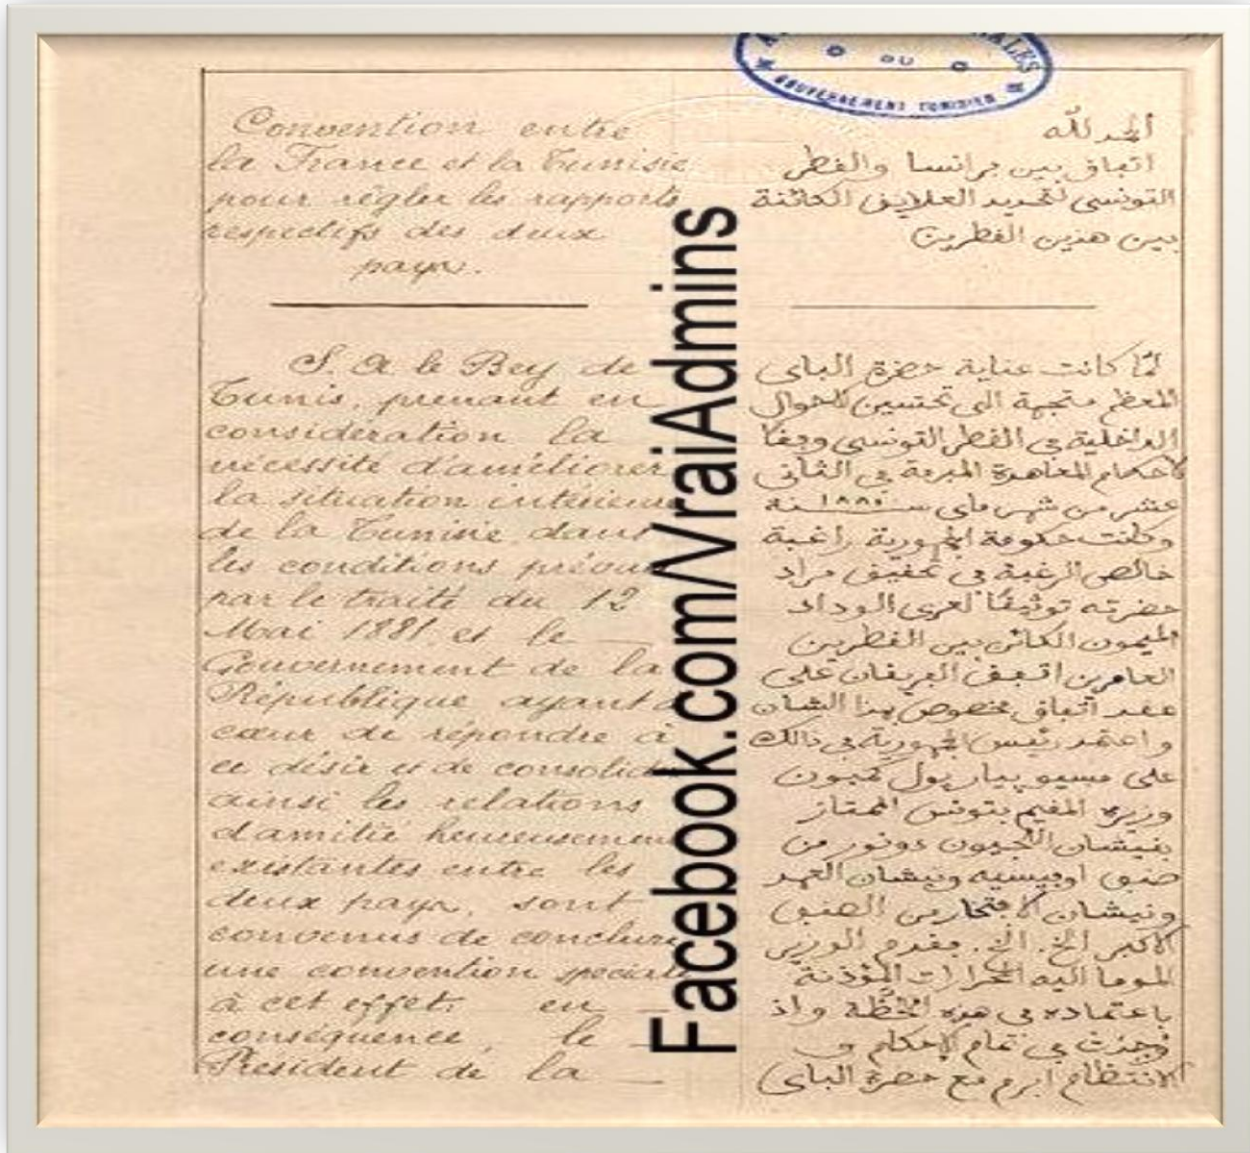 GOUVERNEMENT TUNISIEN
DU
Convention entre
la France et la Tunisie
pour régler les rapports
respectifs des deux
pays.
S. A le Bey de
Tunis, prenant en
considération la
nécessité d'améliorer
la situation intérieure
de la Tunisie dans
les conditions prévues
par le traité du 12
Mai 1881 et le
Gouvernement de la
République ayant à
cœur de répondre à
ce désir et de consolider
ainsi les relations
d'amitié heureusement
existantes entre les
deux pays, sont
convenus de conclure
une convention spéciale
à cet effet: en
conséquence, le
Président de la
Facebook.com/VraiAdmins
الحمد لله
اتفاق بين فرانسا والقطر
التونسي لتحديد العلايق الكائنة
بين هذين القطرين
لما كانت عناية حضرة الباي
المعظم متجهة الى تحسين الاحوال
الداخلية في القطر التونسي وفقا
لاحكام المعاهدة المبرمة في الثاني
عشر من شهر ماي سنة
وكانت حكومة الجمهورية راغبة
خالص الرغبة في تحقيق مراد
حضرته توثيقا لعرى الوداد
الميمون الكائن بين القطرين
العامرين اتفق الفريقان على
عقد اتفاق مخصوص بهذا الشان
واعتمد رئيس الجمهورية في ذالك
على مسيو پيار پول كمبون
وزيره المقيم بتونس الممتاز
بنيشان اللجيون دونور من
صنف اوفيسيه ونيشان العهد
ونيشان الافتخار من الصنف
الاكبر الخ. الخ. فقدم الوزير
الموما اليه المحررات المؤذنة
باعتماده في هذه الخطة واذ
وجدت في تمام الاحكام و
الانتظام ابرم مع حضرة الباي